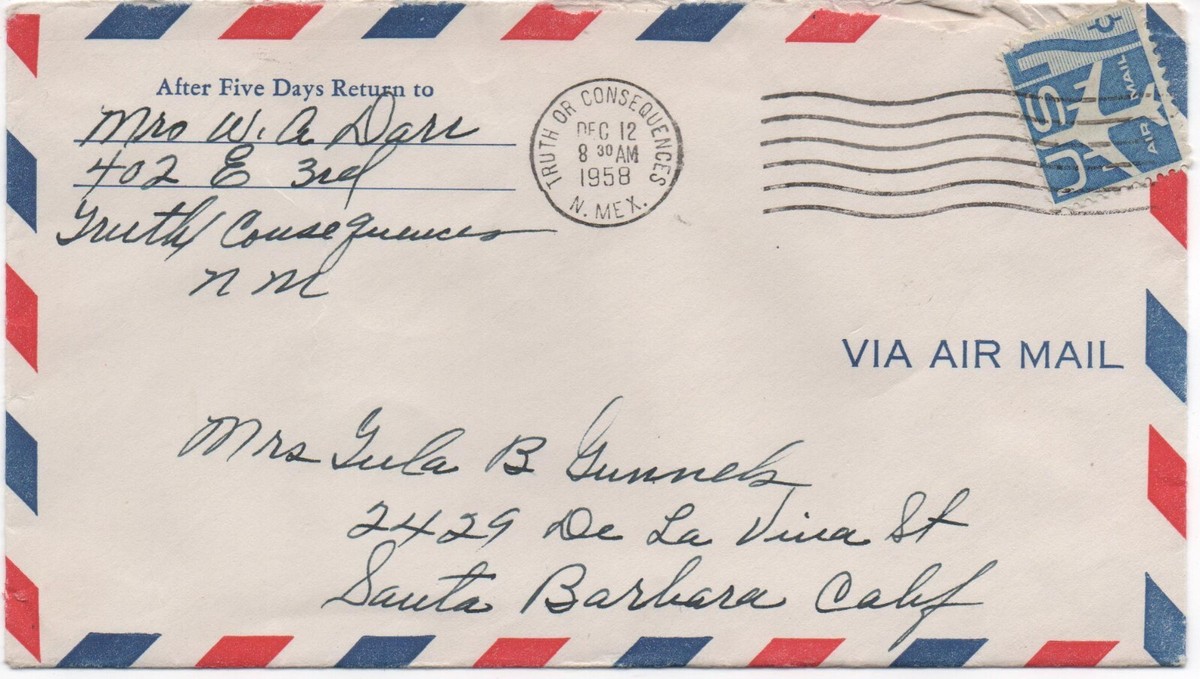 After Five Days Return to
Mrs W. A Darr
402 E 3rd
Truth/Consequences
N M
TRUTH OR CONSEQUENCES
DEC 12
8 30 AM
1958
N. MEX.
7¢
US
AIR MAIL
VIA AIR MAIL
Mrs Lula B Gunnels
2429 De La Vina St
Santa Barbara Calif